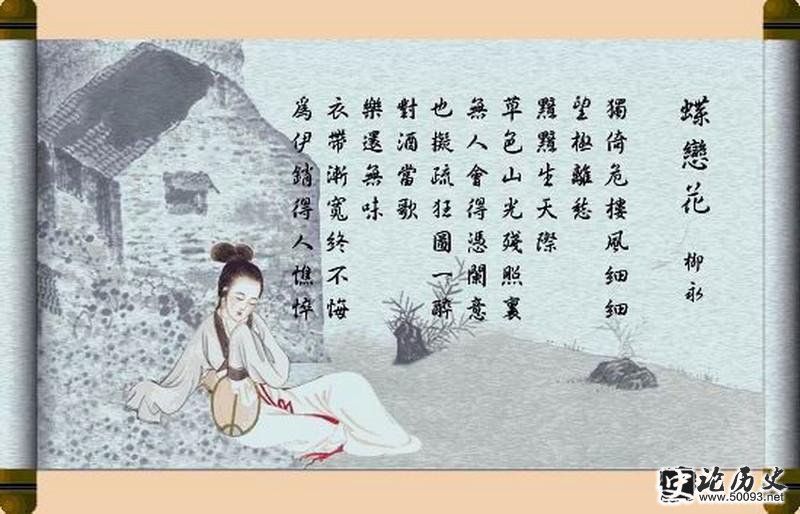 蝶戀花
柳永
獨倚危樓風細細
望極離愁
黯黯生天際
草色山光殘照裏
無人會得憑闌意
也擬疏狂圖一醉
對酒當歌
樂還無味
衣帶漸寬終不悔
爲伊銷得人憔悴
论历史
www.50093.net